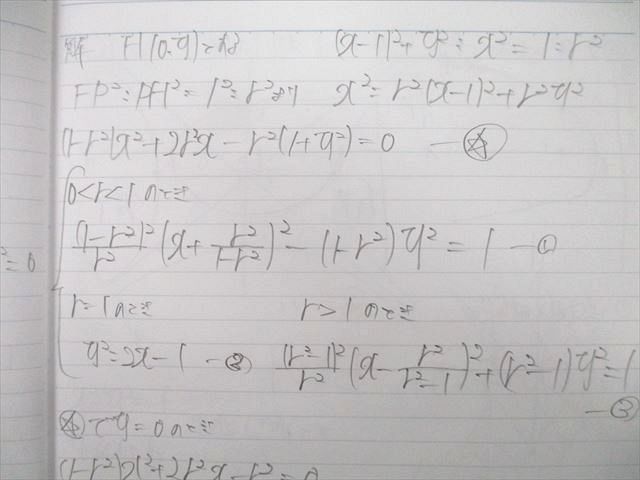 解 H(0,y)とおく (x-1)²+y²:x²=1:r²
FP²:PH²=1²:r²より x²=r²(x-1)²+r²y²
(1-r²)x²+2r²x-r²(1+y²)=0 —Ⓐ
0<r<1のとき
(1-r²)²/r² (x+r²/(1-r²))²-(1-r²)y²=1 —①
r=1のとき r>1のとき
y²=2x-1 —② (r²-1)²/r² (x-r²/(r²-1))²+(r²-1)y²=1
—③
Ⓐでy=0のとき
(1-r²)x²+2r²x-r²=0
²=0